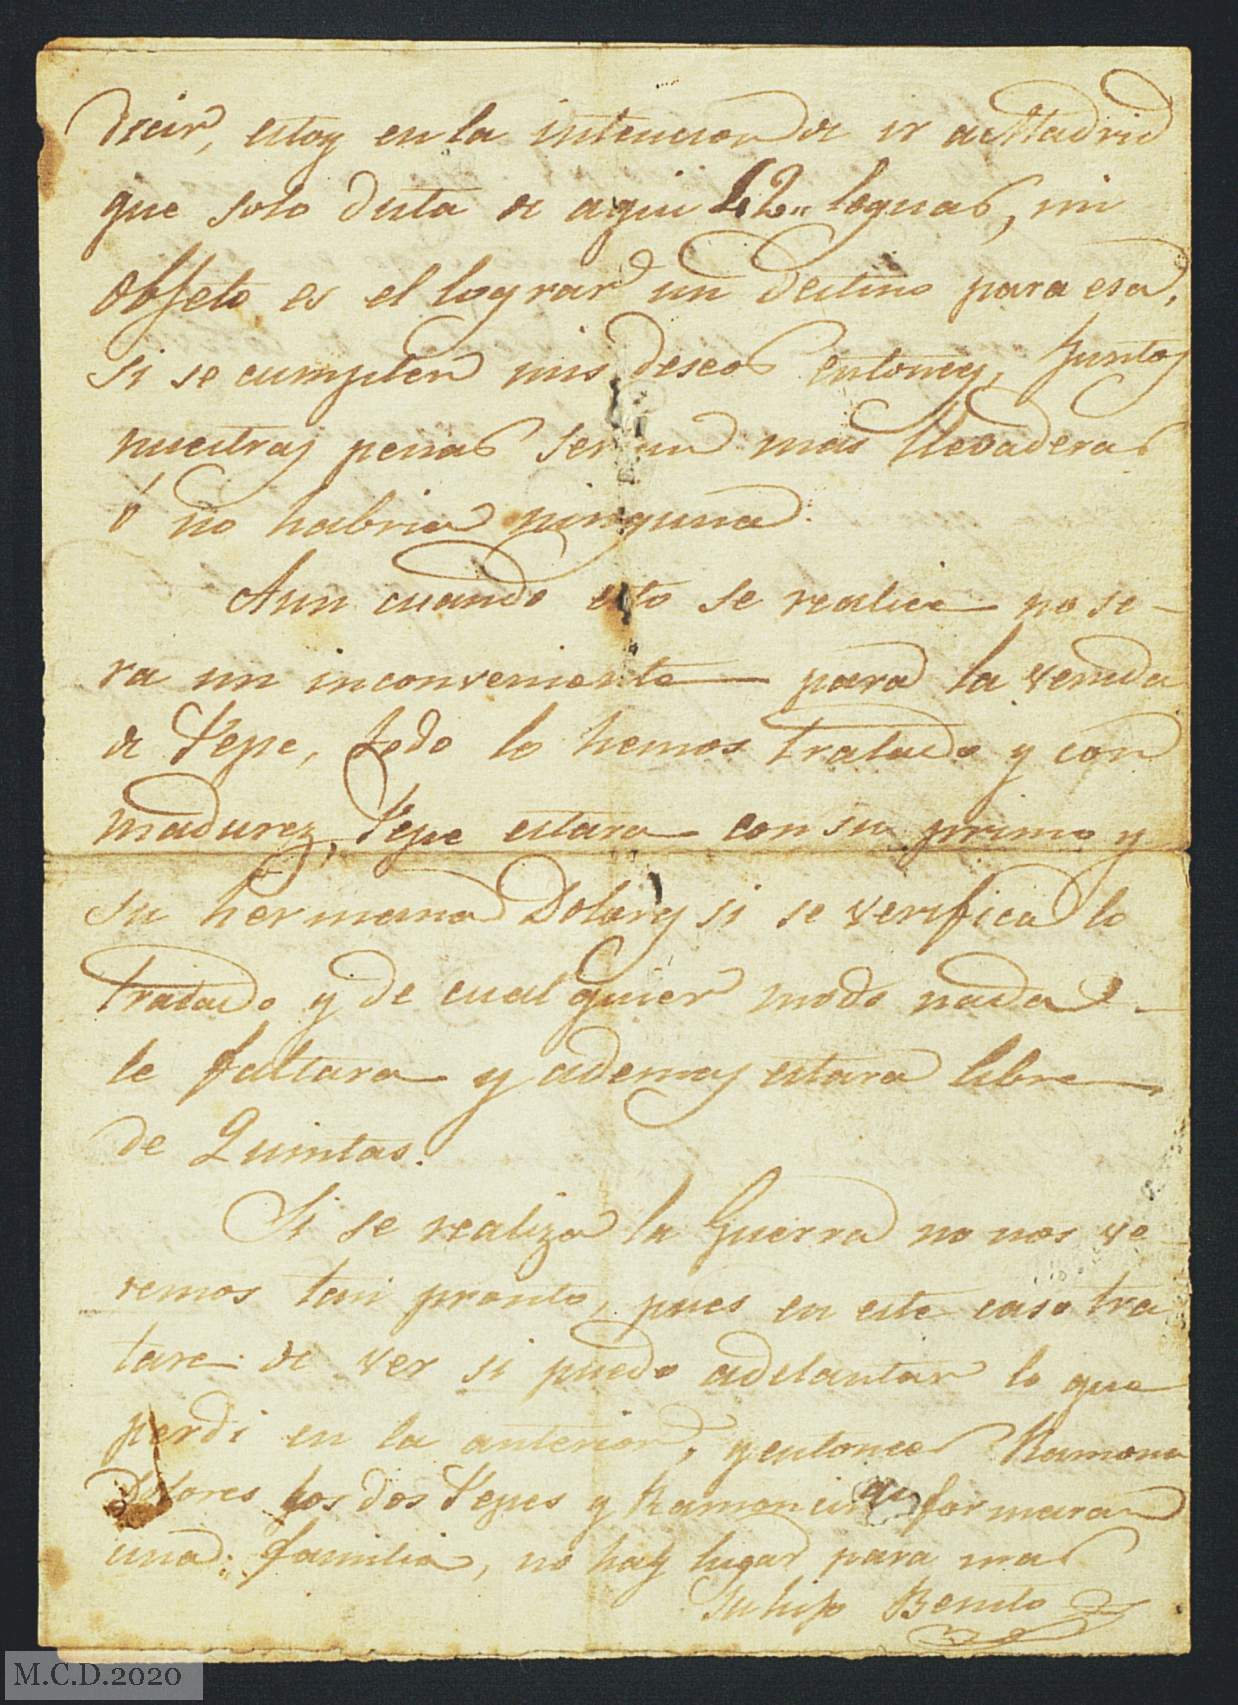 decir, estoy en la intencion de ir a Madrid
que solo dista de aqui 42" leguas, mi
objeto es el lograr un destino para esa,
si se cumplen mis deseos entonces, Juntos
nuestras penas seran mas llevaderas
ó no habria ninguna.
Aun cuando esto se realice no se-
ra un inconveniente para la venida
de Pepe, todo lo hemos tratado y con
madurez, Pepe estara con su primo y
su hermana Dolores si se verifica lo
tratado y de cualquier modo nada
le faltara y ademas estara libre
de Quintas.
Si se realiza la Guerra no nos ve-
remos tan pronto, pues en este caso tra
tare de ver si puedo adelantar lo que
perdi en la anterior, y entonces Ramona
Dolores los dos Pepes y Ramon formaran
una familia, no hay lugar para mas
Su hijo Benito
M.C.D.2020